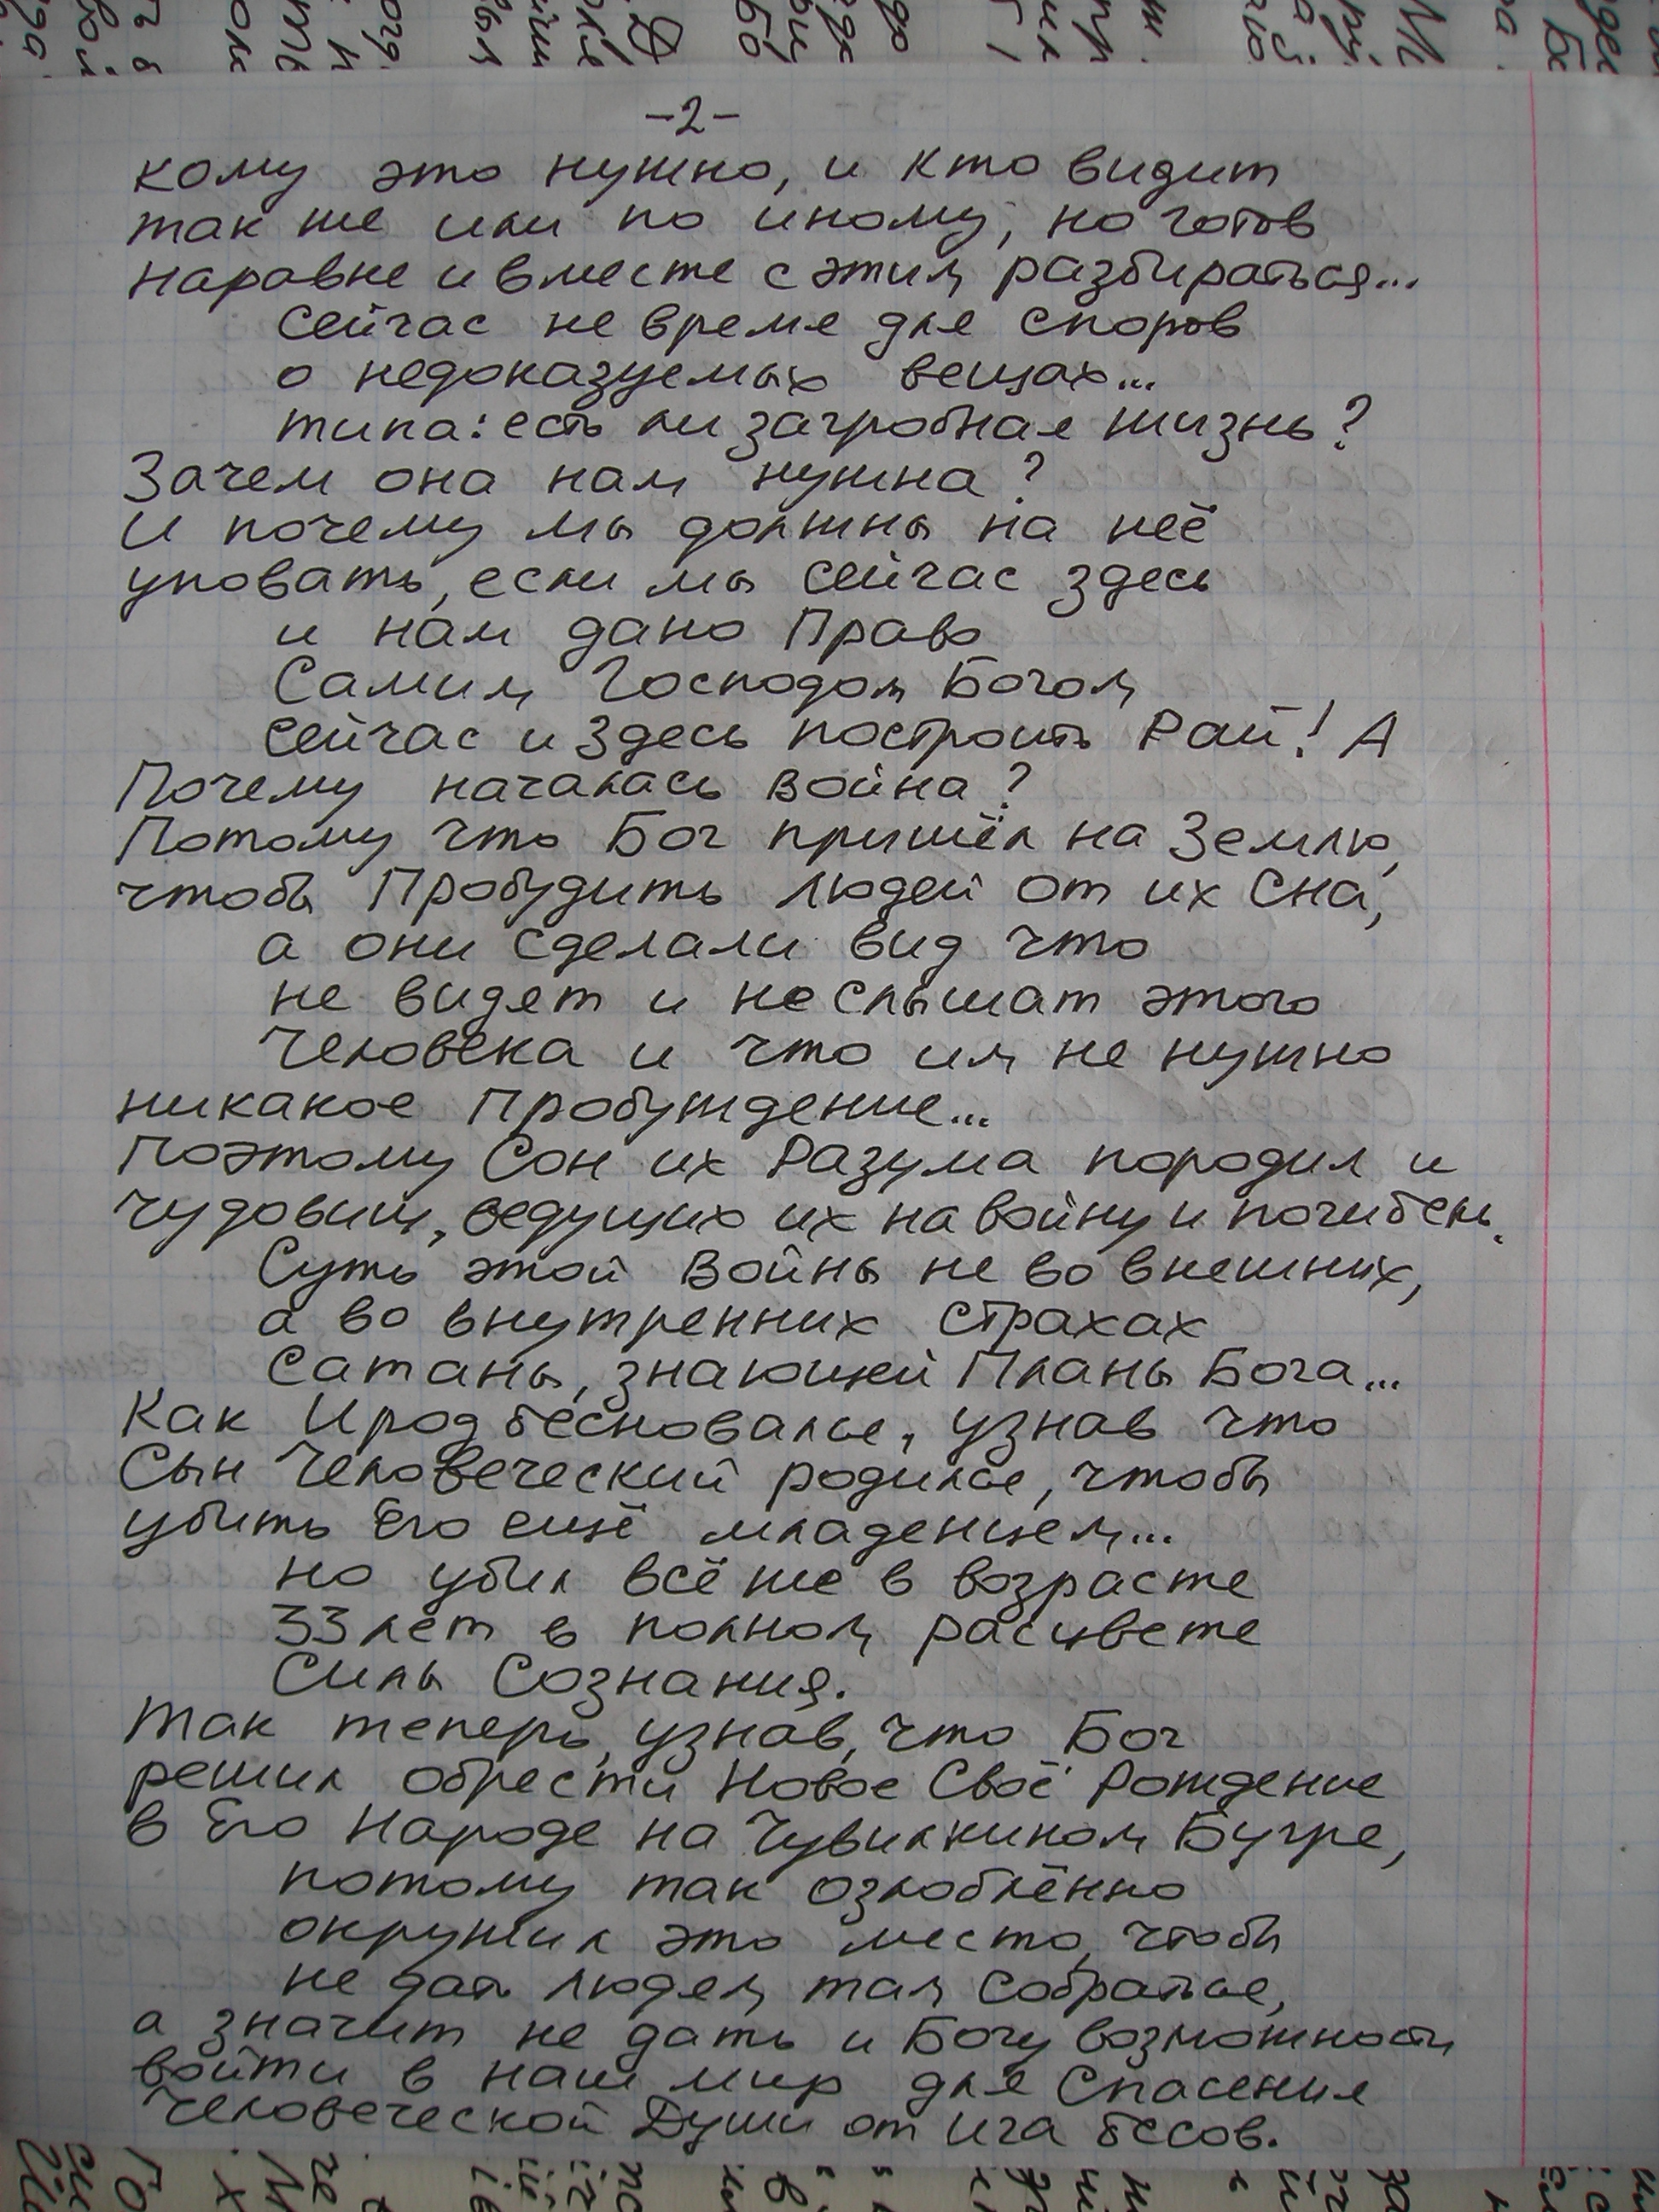 -2-
кому это нужно, и кто видит
так же или по иному, но готов
наравне и вместе с этим разбираться...
Сейчас не время для споров
о недоказуемых вещах...
типа: есть ли загробная жизнь?
Зачем она нам нужна?
И почему мы должны на неё
уповать, если мы сейчас здесь
и нам дано Право
Самим Господом Богом
сейчас и здесь построить Рай! А
Почему началась война?
Потому что Бог пришёл на Землю,
чтобы Пробудить людей от их Сна,
а они сделали вид что
не видят и не слышат этого
Человека и что им не нужно
никакое Пробуждение...
Поэтому Сон их Разума породил и
чудовищ, ведущих их на войну и погибель.
Суть этой войны не во внешних,
а во внутренних страхах
Сатаны, знающей Планы Бога...
Как Ирод бесновался, узнав что
Сын Человеческий родился, чтобы
убить Его ещё младенцем...
но убил всё же в возрасте
33 лет в полном расцвете
Силы Сознания.
Так теперь, узнав, что Бог
решил обрести Новое Своё Рождение
в Его Народе на Чувилкином Бугре,
потому так озлоблённо
окружил это место, чтобы
не дать людям там собраться,
а значит не дать и Богу возможности
войти в наш мир для Спасения
Человеческой Души от ига бесов.